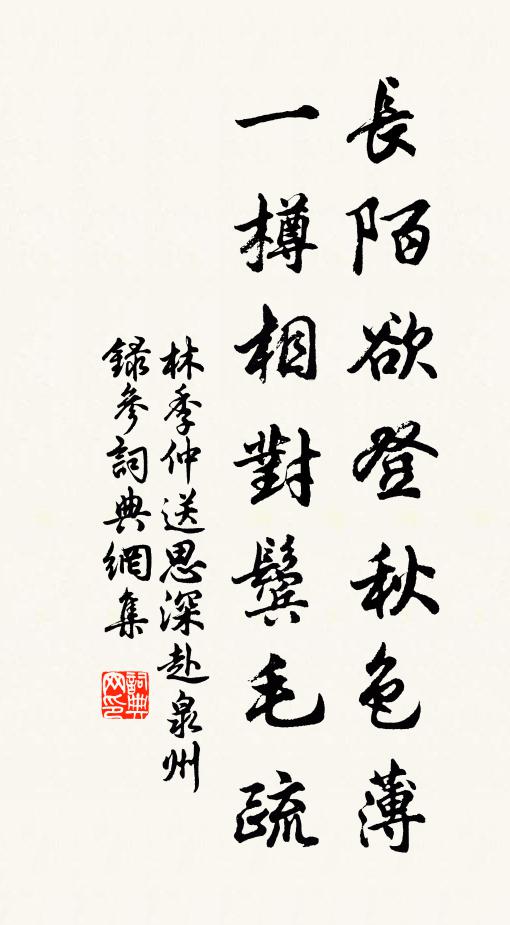 長陌欲登秋色薄
一樽相對鬢毛疏
林季仲送思深赴泉州
錄參詞典網集
詞典網印